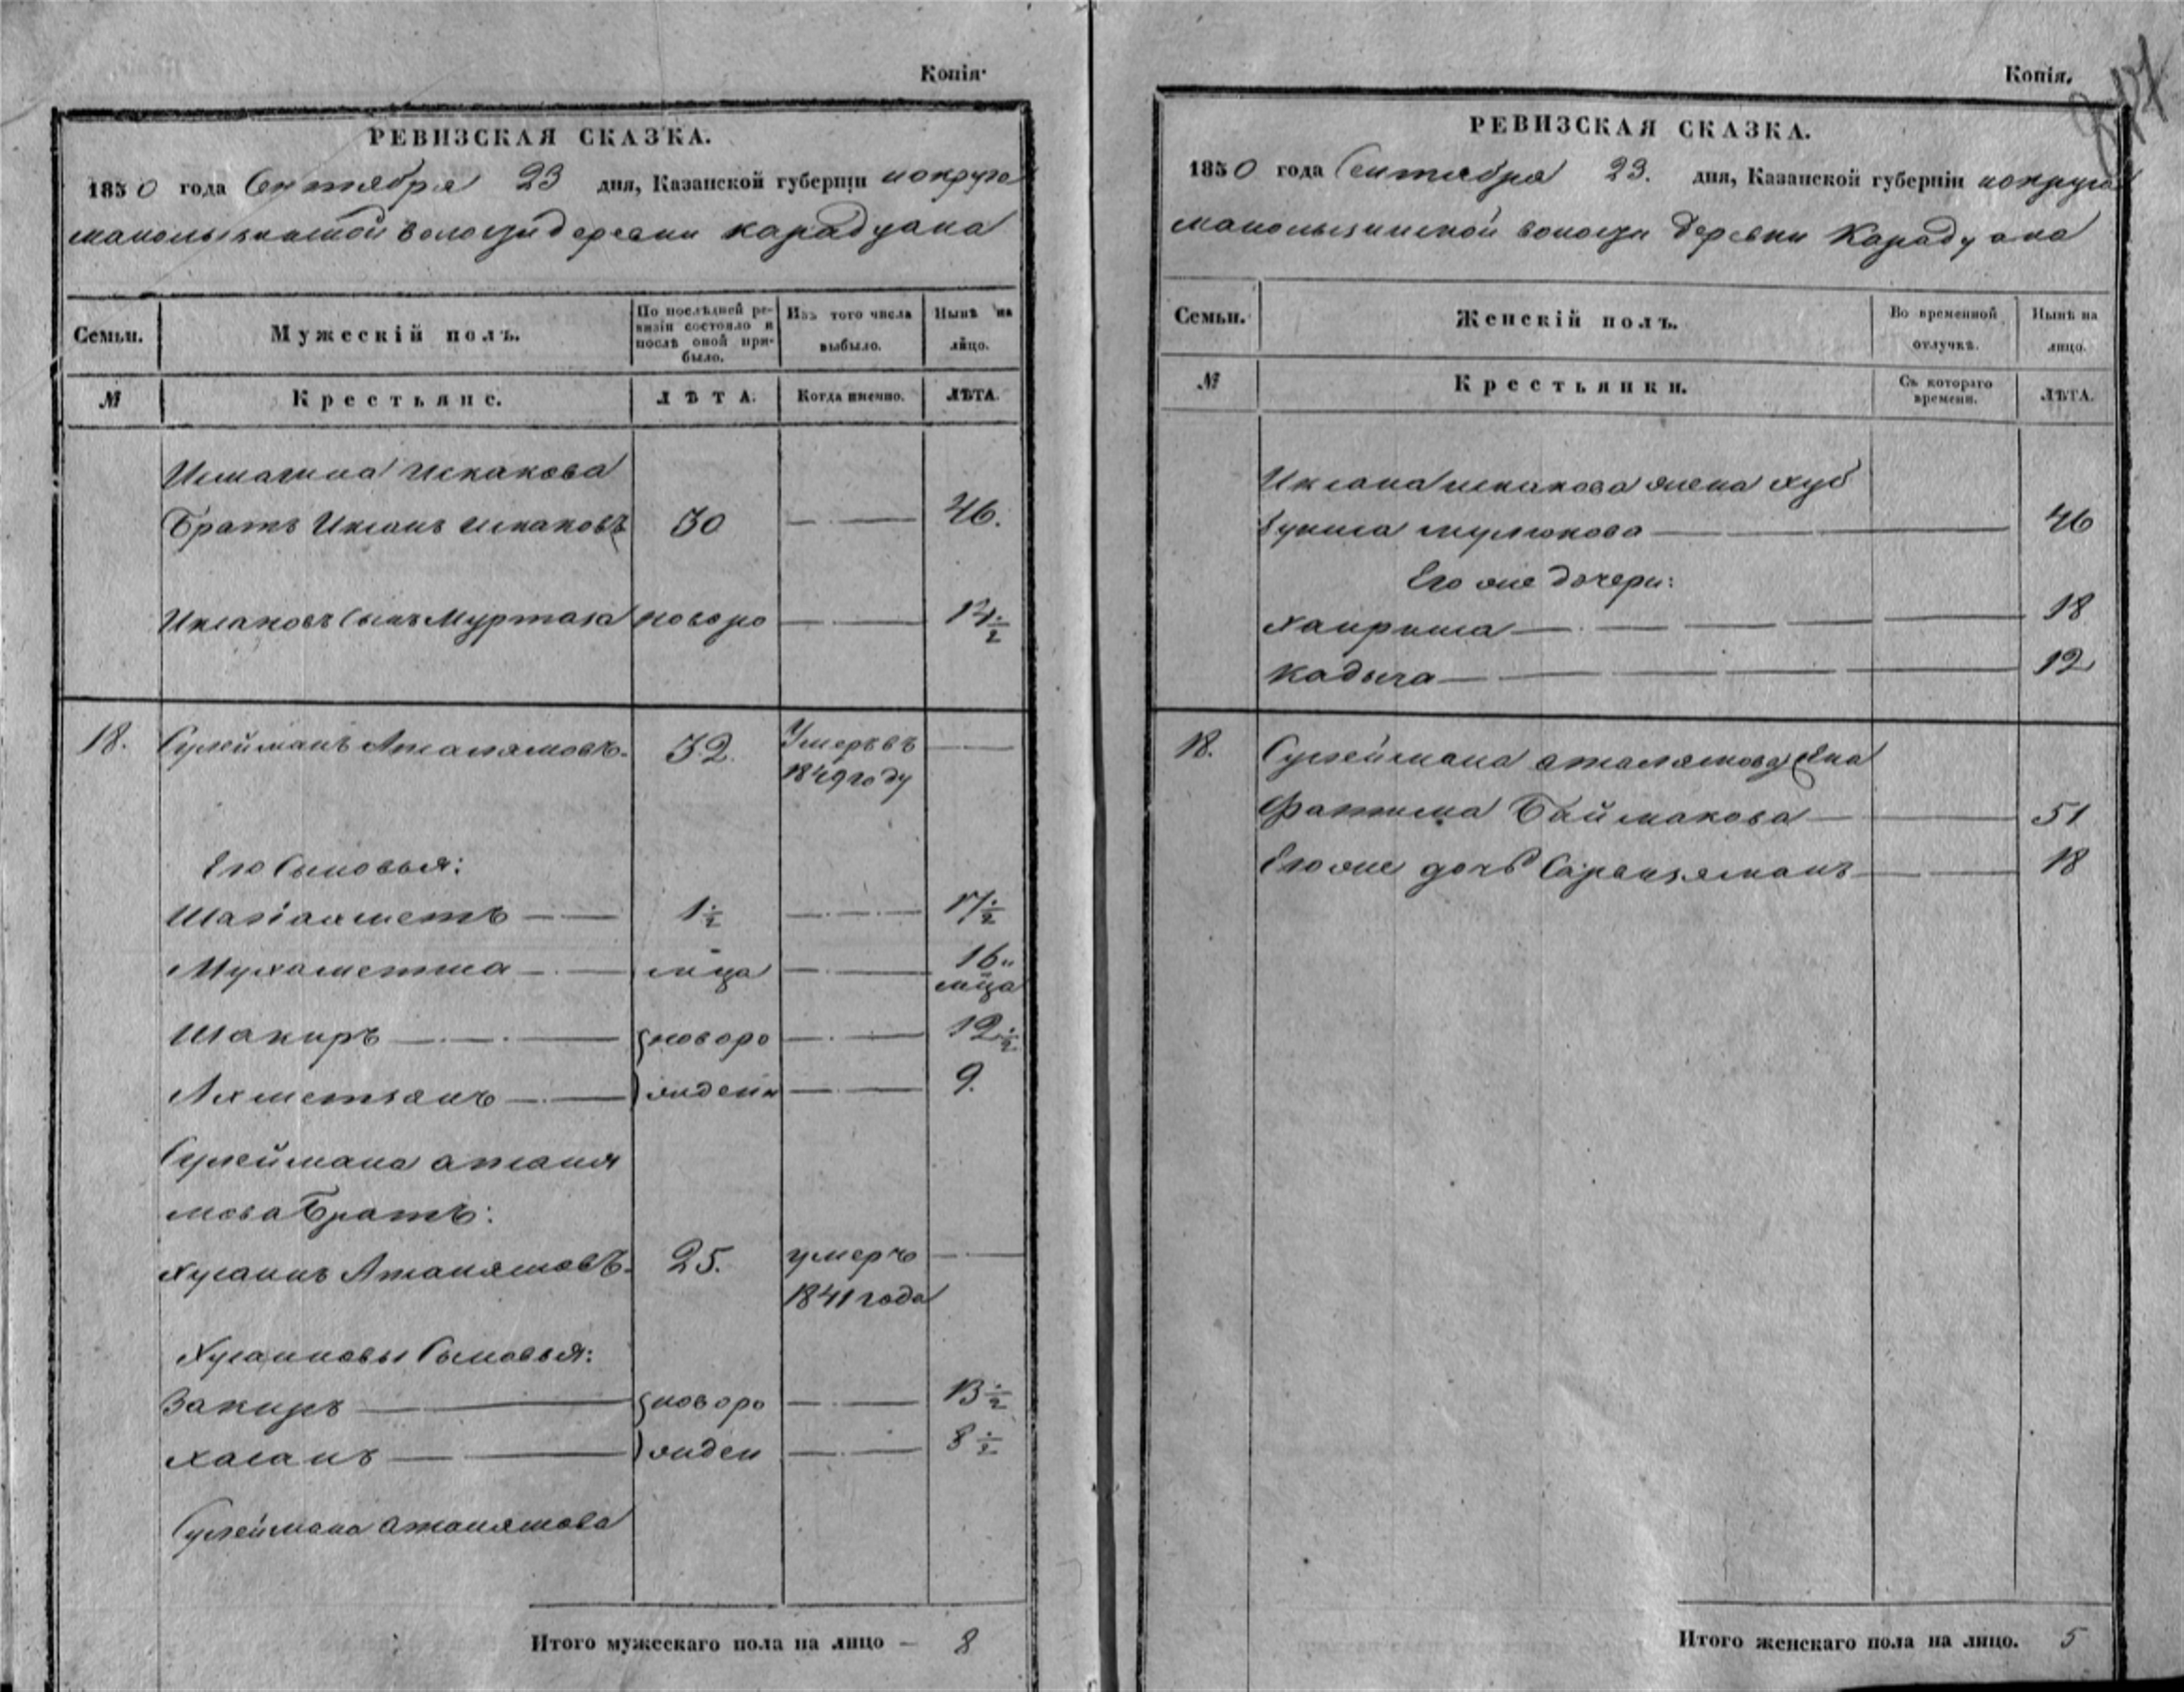 Копія.
РЕВИЗСКАЯ СКАЗКА.
1850 года Сентября 23 дня, Казанской губерніи
волости деревни Карадуана
Семьи. Мужескій полъ. По послѣдней ревизіи состояло и послѣ оной прибыло. Изъ того числа выбыло. Нынѣ на лицо.
№ Крестьяне. ЛѢТА. Когда именно. ЛѢТА.
Искакова
Братъ Иксанъ Искаковъ 30 46.
Иксановъ Сынъ Муртаза новоро
18. Сулейманъ 32. Умеръ въ
1849 году
Его Сыновья:
1 ½ 17 ½
Мухаметша мца 16 и
мца
Шакиръ новоро 12 ½
Ахметзянъ жденн 9.
Сулеймана
мова Братъ:
Хусаинъ 25. умеръ
1841 года
Хусаиновы Сыновья:
Закиръ новоро 13 ½
Хасанъ жден 8 ½
Сулеймана
Итого мужескаго пола на лицо — 8
Копія.
РЕВИЗСКАЯ СКАЗКА.
1850 года Сентября 23. дня, Казанской губерніи
волости Деревни Карадуана
Семьи. Женскій полъ. Во временной отлучкѣ. Нынѣ на лицо.
№ Крестьянки. Съ котораго времени. ЛѢТА.
Иксана искакова жена Хуб
46
Его же дочери:
18
Кадыча 12
18. Сулеймана жена
Фатима Баймакова 51
Его же дочь 18
Итого женскаго пола на лицо. 5